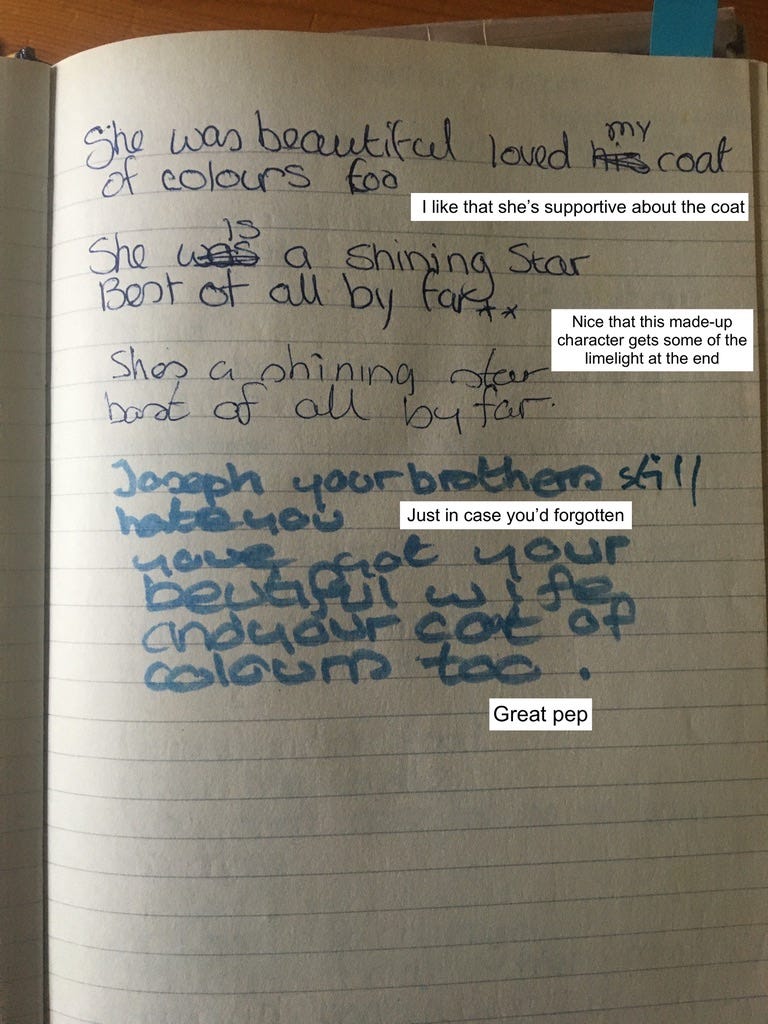 my
She was beautiful loved his coat
of colours too
I like that she's supportive about the coat
is
She was a shining Star
Best of all by far
Nice that this made-up
character gets some of the
limelight at the end
Shes a shining star
best of all by far.
Joseph your brothers still
hate you
Just in case you'd forgotten
youve got your
beutiful wife
and your coat of
colours too .
Great pep